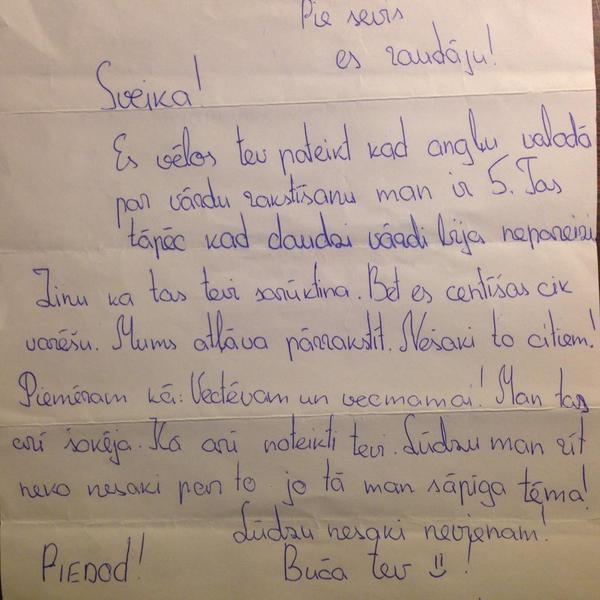 Pie sevis
es raudāju!
Sveika!
Es vēlos tev pateikt kad angļu valodā
par vārdu rakstīšanu man ir 5. Tas
tāpēc kad daudzi vārdi bija nepareizi
Zinu ka tas tevi sarūktina. Bet es centīšos cik
varēšu. Mums atļāva pārrakstīt. Nesaki to citiem!
Piemēram kā: Vectēvam un vecmamai! Man tas
arī šokēja. Kā arī noteikti tevi. Lūdzu man rīt
neko nesaki par to jo tā man sāpīga tēma!
Lūdzu nesaki nevienam!
PIEDOD! Buča tev !